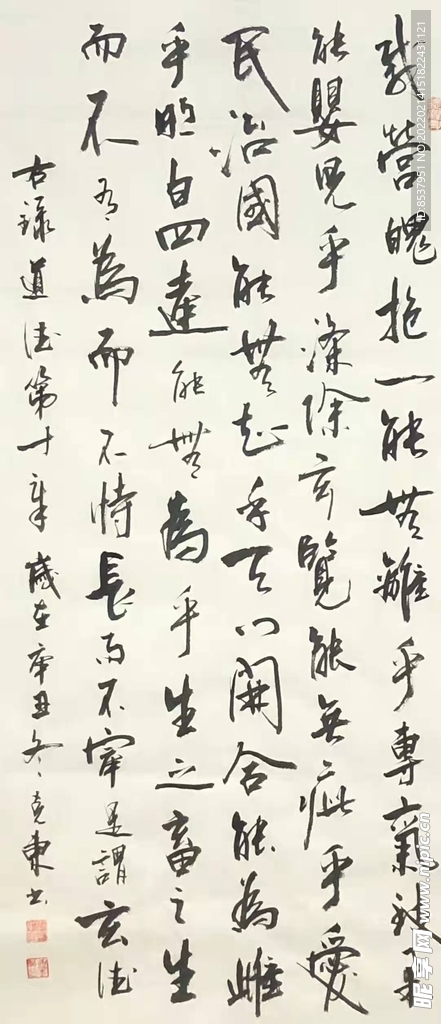 載營魄抱一能無離乎專氣致柔
能嬰兒乎滌除玄覽能無疵乎愛
民治國能無知乎天門開合能為雌
乎明白四達能無為乎生之畜之生
而不有為而不恃長而不宰是謂玄德
右錄道德第十章歲在丑冬克東書
ID:8537951 NO:20220214151822431121
昵享网 www.nipic.cn